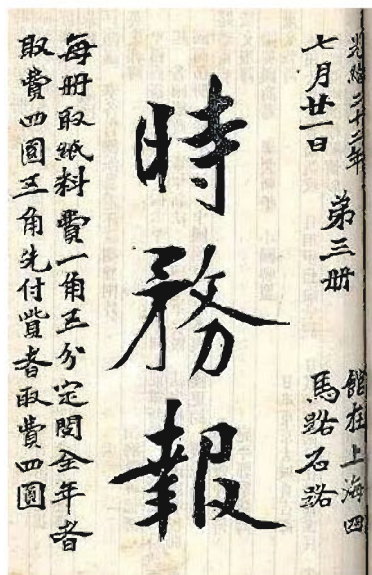 光緒二十二年
七月廿一日
第三册
館在上海四
馬路石路
時務報
每册取紙料費一角五分定閱全年者
取費四圓五角先付貲者取費四圓